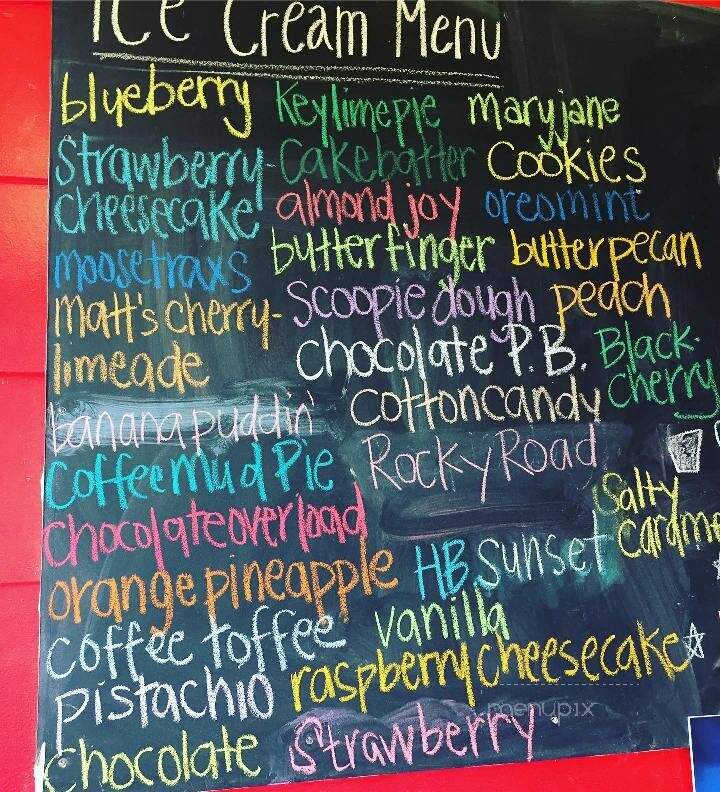 Ice Cream Menu
blueberry Keylimepie maryjane
Strawberry- Cakebatter Cookies
cheesecake almond joy oreomint
moosetraxs butterfinger butterpecan
matt's cherry- Scoopie dough peach
limeade chocolate P.B. Black-
cherry
bananapuddin' cottoncandy
Coffee Mud Pie Rocky Road
Salty
chocolateoverload caramel
orangepineapple HB Sunset
coffee toffee vanilla
pistachio raspberrycheesecake
chocolate Strawberry
menupix